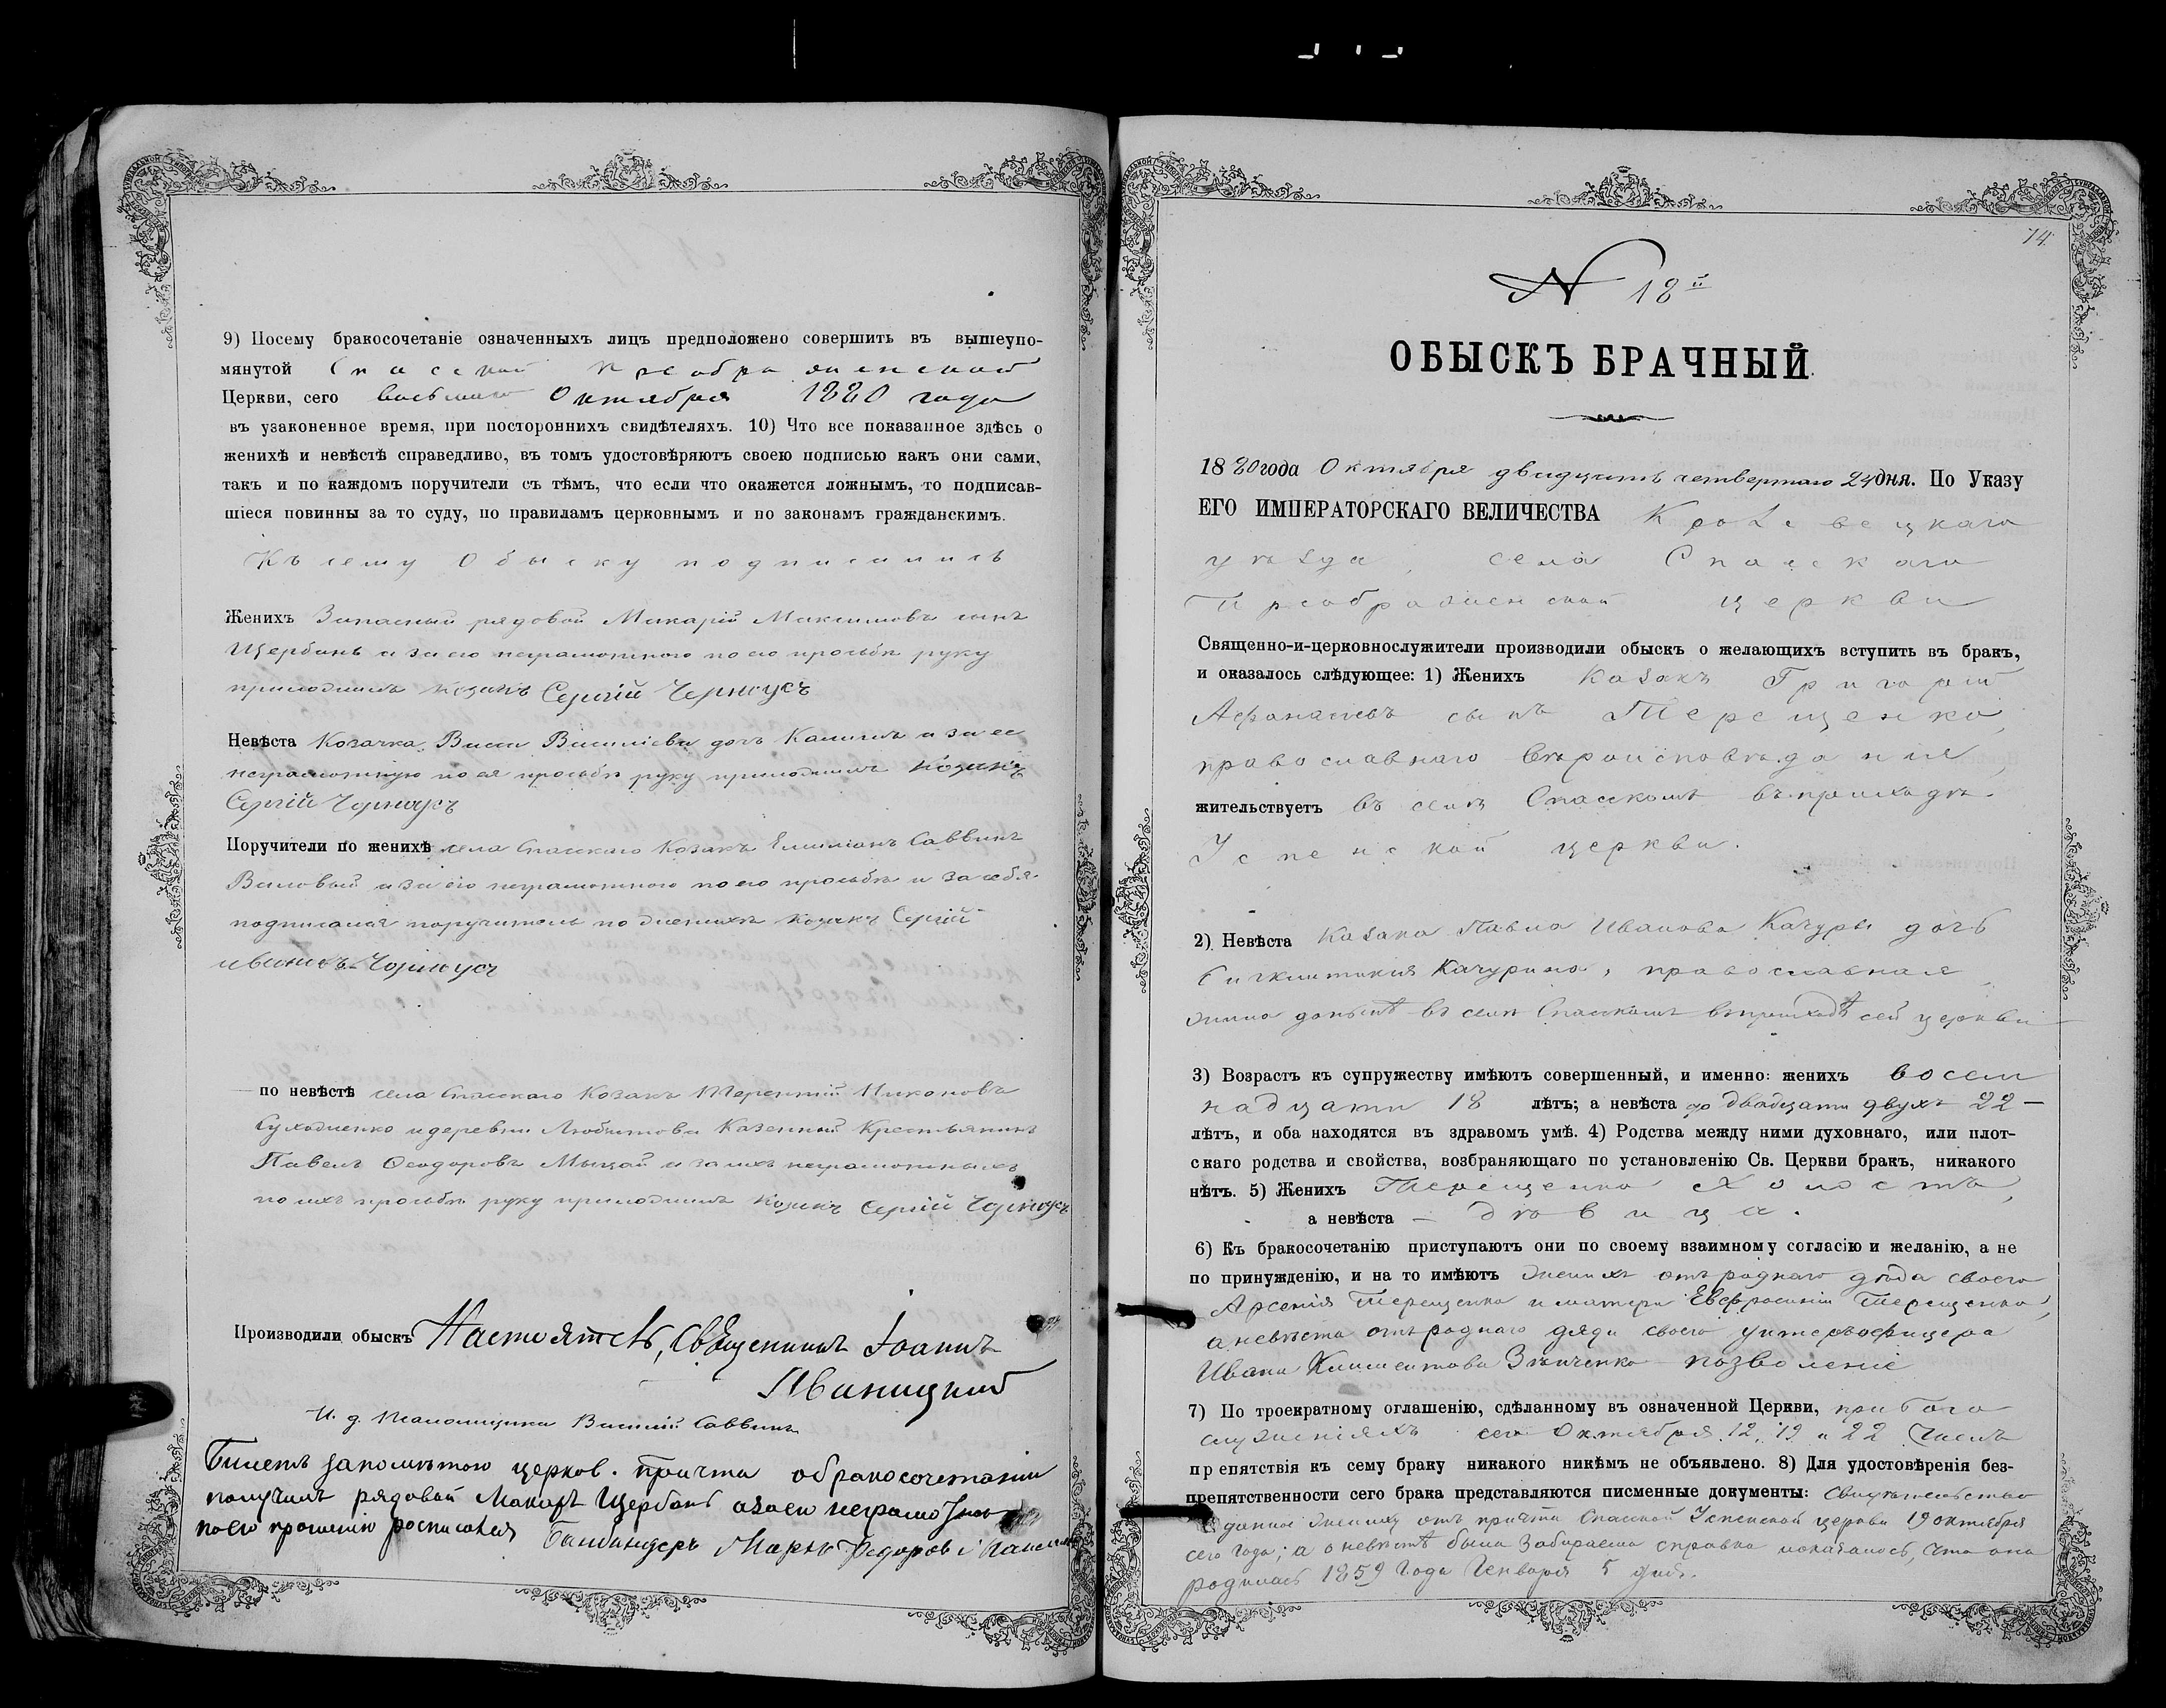 9) Посему бракосочетаніе означенныхъ лицъ предположено совершить въ вышеупо-
мянутой Спасской Преображенской
Церкви, сего восьмаго Октября 1880 года
въ узаконенное время, при постороннихъ свидѣтеляхъ. 10) Что все показанное здѣсь о
женихѣ и невѣстѣ справедливо, въ томъ удостовѣряютъ своею подписью какъ они сами,
такъ и по каждомъ поручители съ тѣмъ, что если что окажется ложнымъ, то подписав-
шіеся повинны за то суду, по правиламъ церковнымъ и по законамъ гражданскимъ.
Къ сему Обыску подписались
Женихъ Запасный рядовой Макарій Максимовъ сынъ
Щербань а за его неграмотного по его прозьбѣ руку
приложилъ козакъ Сергій Черноусъ
Невѣста Козачка Васса Василіева дочь а за ее
неграмотную по ея прозьбѣ руку приложилъ козакъ
Сергій Чорноусъ
Поручители по женихѣ села Спасскаго Козакъ Емиліанъ Саввинъ
а за его неграмотного по его прозьбѣ и за себя
подписался поручитель по женихѣ козакъ Сергій
Ивановъ Чорноусъ
по невѣстѣ села Спасскаго Козакъ Терентій Никоновъ
Суходленко и деревни Любитова Казенный Крестьянинъ
Павелъ Ѳеодоровъ Мыцай а за ихъ неграмотныхъ
по ихъ прозьбѣ руку приложилъ Козакъ Сергій Чорноусъ
Производили обыскъ Настоятель, Священникъ Іоаннъ
Иваницкий
И. д. Псаломщика Василій Саввинъ
Билетъ запомѣтою церков. причта обракосочетании
получилъ рядовой Макаръ Щербань азаего неграмотного
поего прошению росписался Бамбандеръ Марко Федоровъ
74.
N 18й
ОБЫСКЪ БРАЧНЫЙ.
1880 года Октября двадцать четвертаго 24 дня. По Указу
ЕГО ИМПЕРАТОРСКАГО ВЕЛИЧЕСТВА Кролевецкаго
уѣзда, села Спасскаго
Преображенской церкви
Священно-и-церковнослужители производили обыскъ о желающихъ вступить въ бракъ,
и оказалось слѣдующее: 1) Женихъ Казакъ Григорій
Афанасіевъ сынъ Терещенко,
православнаго вѣроисповѣданія,
жительствуетъ въ селѣ Спасскомъ въ приходѣ
Успенской церкви.
2) Невѣста Казака Павла Иванова Качуры дочь
Сигклитикия Качурина, православная,
жила донынѣ въ селѣ Спасскомъ въ приходѣ сей церкви
3) Возрастъ къ супружеству имѣютъ совершенный, и именно: женихъ восем
надцати 18 лѣтъ; а невѣста до двадцати двухъ 22 –
лѣтъ, и оба находятся въ здравомъ умѣ. 4) Родства между ними духовнаго, или плот-
скаго родства и свойства, возбраняющаго по установленію Св. Церкви бракъ, никакого
нѣтъ. 5) Женихъ Терещенко холостъ,
а невѣста – дѣвица.
6) Къ бракосочетанію приступаютъ они по своему взаимному согласію и желанію, а не
по принужденію, и на то имѣютъ женихъ отъ роднаго дѣда своего
Арсенія Терещенка и матери Евфросиніи Терещенко,
а невѣста отъ роднаго дяди своего унтеръофицера
Ивана Климентова Зѣнченко позволеніе
7) По троекратному оглашенію, сдѣланному въ означенной Церкви, при Бого
служеніяхъ сего Октября 12, 19 и 22 Числъ
препятствія къ сему браку никакого никѣмъ не объявлено. 8) Для удостовѣренія без-
препятственности сего брака представляются писменные документы: Свидѣтельство
данное жениху отъ причта Спасской Успенской церкви 19 октября
сего года; а о невѣстѣ была забираема справка показалось, что она
родилась 1859 года Генваря 5 дня.